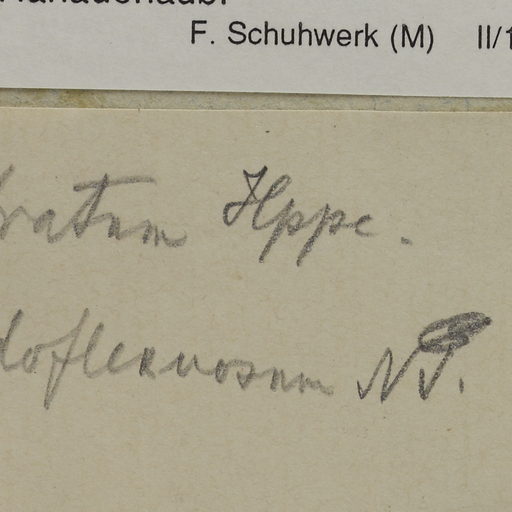 F. Schuhwerk (M) II/1
bratum Hppe.
doflexuosum NP.